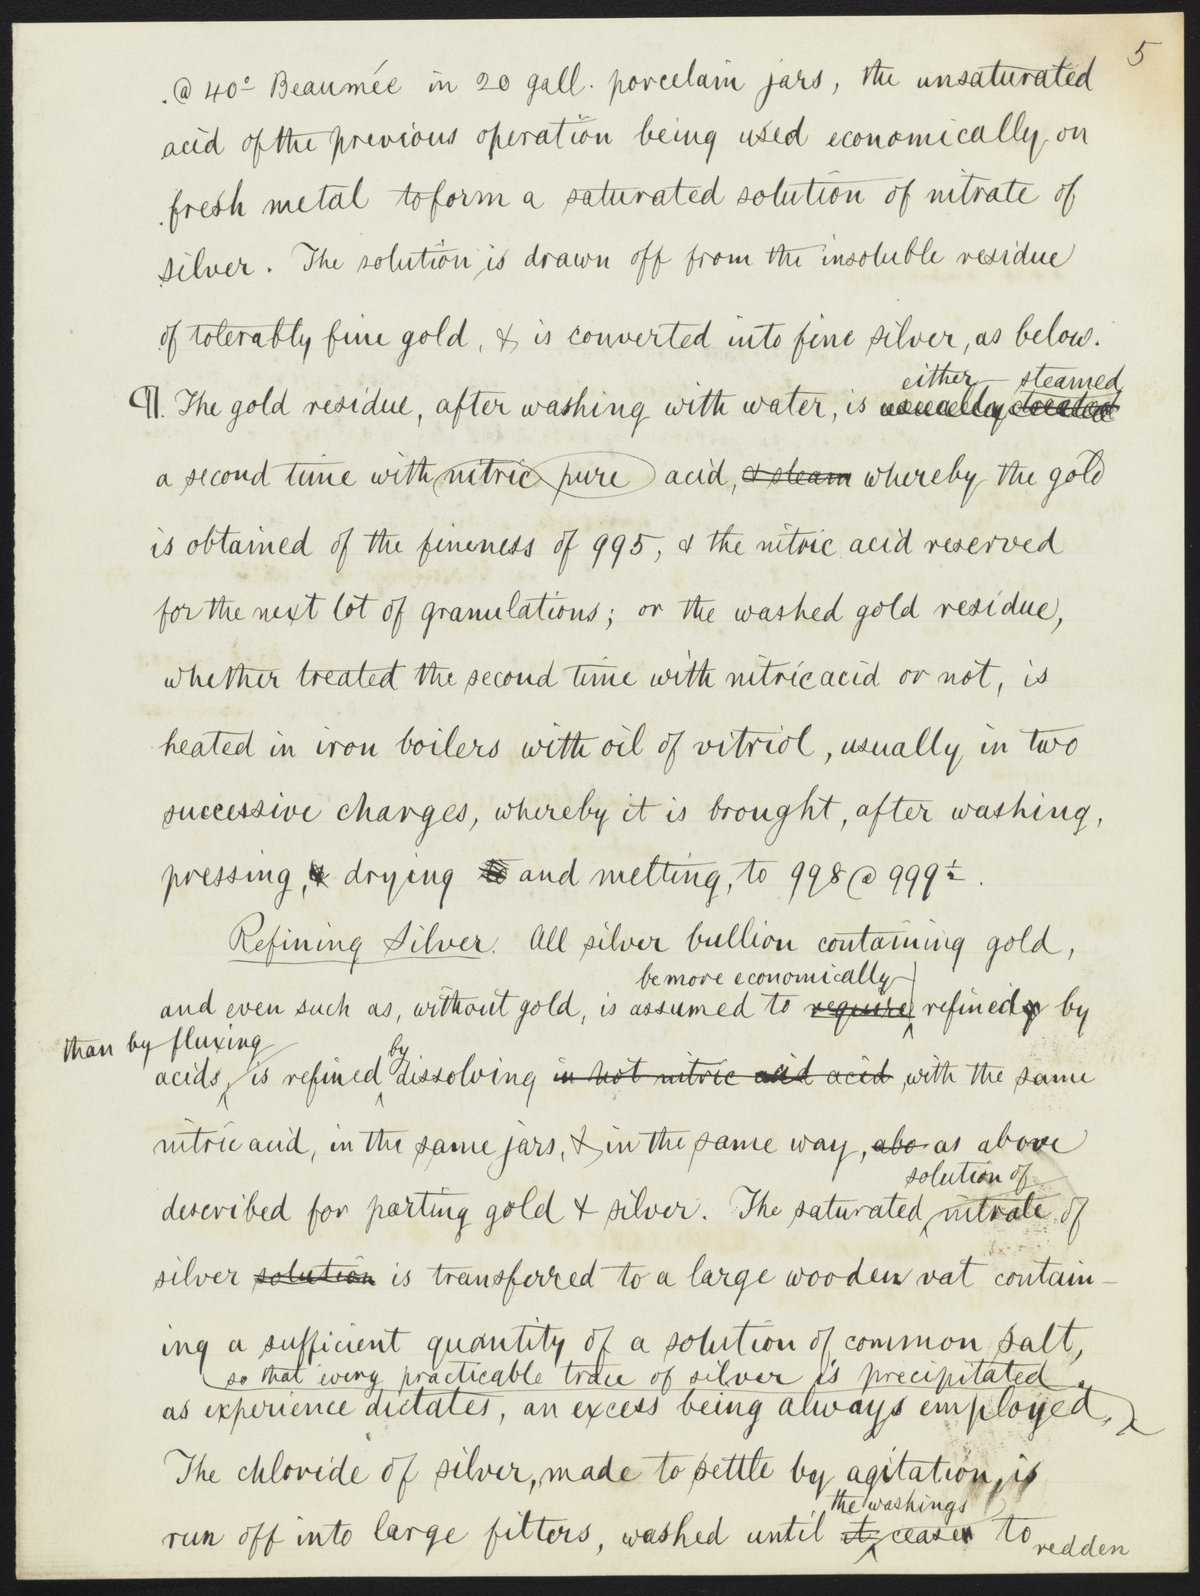 5
@ 40° Beaumée in 20 gall. porcelain jars, the unsaturated
acid of the previous operation being used economically on
fresh metal to form a saturated solution of nitrate of
silver. The solution is drawn off from the insoluble residue
of tolerably fine gold, & is converted into fine silver, as below.
either steamed
¶. The gold residue, after washing with water, is usually treated
a second time with nitric pure acid, & steam whereby the gold
is obtained of the fineness of 995, & the nitric acid reserved
for the next lot of granulations; or the washed gold residue,
whether treated the second time with nitric acid or not, is
heated in iron boilers with oil of vitriol, usually in two
successive charges, whereby it is brought, after washing,
pressing, & drying to and melting, to 998 @ 999±.
Refining Silver. All silver bullion containing gold,
be more economically
and even such as, without gold, is assumed to require refined by
than by fluxing
by
acids, is refined dissolving in hot nitric acid acid with the same
nitric acid, in the same jars, & in the same way, abo as above
solution of
described for parting gold & silver. The saturated nitrate of
silver solution is transferred to a large wooden vat contain-
ing a sufficient quantity of a solution of common salt,
so that every practicable trace of silver is precipitated.
as experience dictates, an excess being always employed,
The chloride of silver, made to settle by agitation, is
the washings
run off into large filters, washed until it ceases to redden